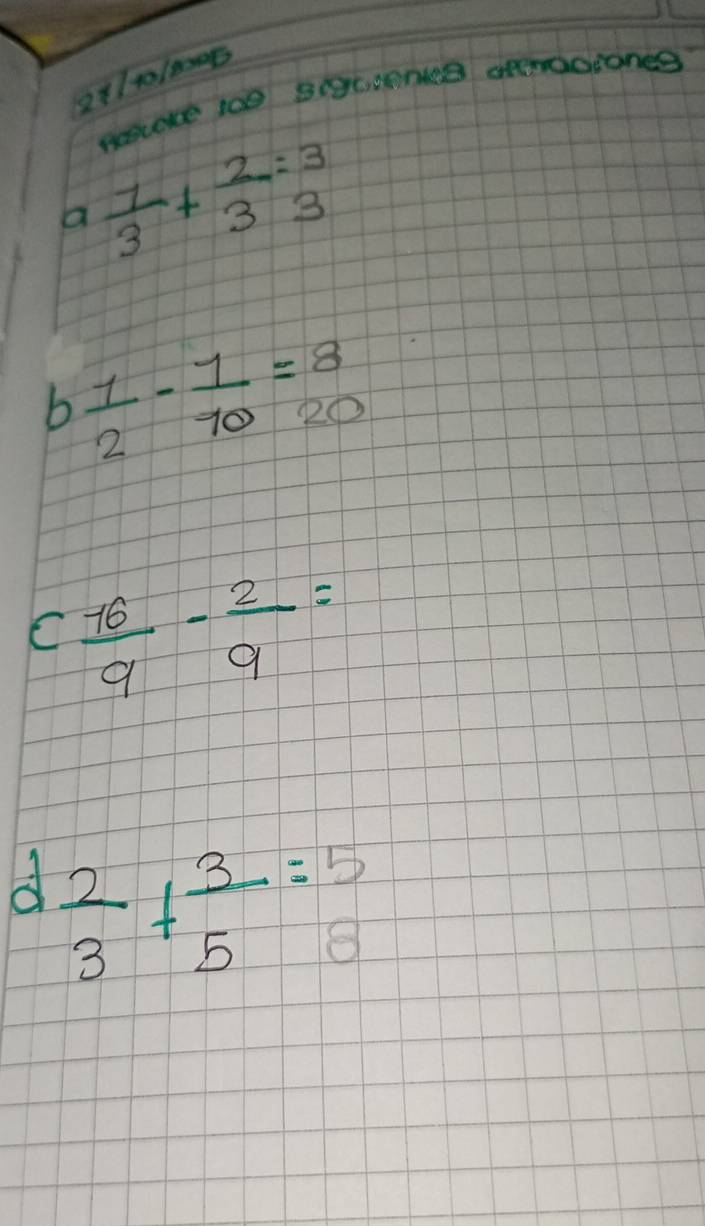 resuelve los siguientes operaciones
a 1/3 + 2/3 = 3/3
b 1/2 - 1/10 = 8/20
c 16/9 - 2/9 =
d 2/3 + 3/5 = 5/8